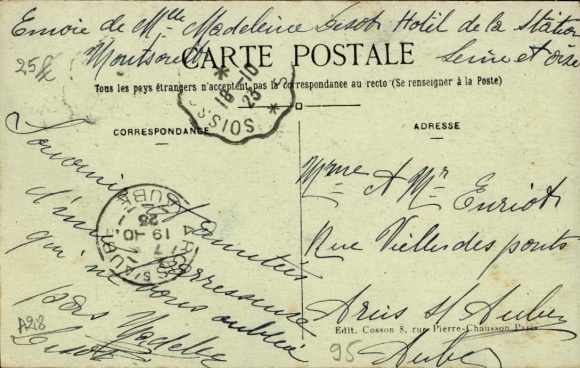 Envoie de Mlle Madeleine Lesob Hotel de la Station
Montsoult
Seine et Oise
CARTE POSTALE
Tous les pays étrangers n'acceptent pas la correspondance au recto (Se renseigner à la Poste)
25
18-10
23
SOISS
CORRESPONDANCE
ADRESSE
Souvenir et amitiés
d'une paresseuse
qui ne vous oublie
pas Madele
Lesob
ARCIS S/ AUBE
AUBE
19-10
23
Mme & Mr Enriot
Rue Vielles des ponts
Arcis s/ Aube
Aube
Edit. Cosson 8, rue Pierre-Chausson Paris
A28
95